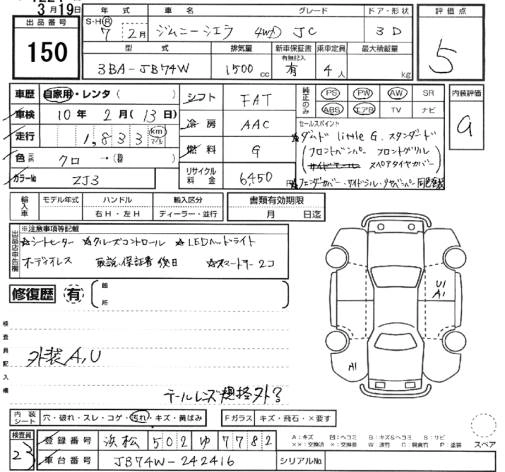 3月19日
出品番号 150
年式 S・H・R 7年 2月
車名 ジムニーシエラ 4WD
グレード JC
ドア・形状 3D
評価点 5
型式 3BA-JB74W
排気量 1500cc
新車保証書 有無記入 有
乗車定員 4人
最大積載量 kg
車歴 自家用・レンタ( )
車検 10年 2月(13日)
走行 1,833 km マイル
色 クロ→( )
カラーNo ZJ3
シフト FAT
冷房 AAC
燃料 G
リサイクル料金 6,450
純正のみ PS PW AW SR
ABS エアB TV ナビ
セールスポイント
ダムド little G. スタンダード
(フロントバンパー フロントグリル
スペアタイヤカバー
内装評価 a
輸入車 モデル年式 ハンドル 右H・左H 輸入区分 ディーラー・並行
書類有効期限 月 日迄
※注意事項等記載
出品店申告欄
☆シートヒーター ☆クルーズコントロール ☆LEDヘッドライト
オーディオレス 取説・保証書後日 ☆スマートキー2コ
修復歴 有 箇所
検査員記入欄
外装A,U
テールレンズ規格外
U1
A1
A1
内装シート 穴・破れ・スレ・コゲ・汚れ・キズ・黄ばみ
Fガラス キズ・飛石・×要す
スペア
検査員 23
登録番号 浜松 502 ゆ 7782
車台番号 JB74W-242416
シリアルNo.
A:キズ U:凹ヘコミ B:キズ&ヘコミ S:サビ